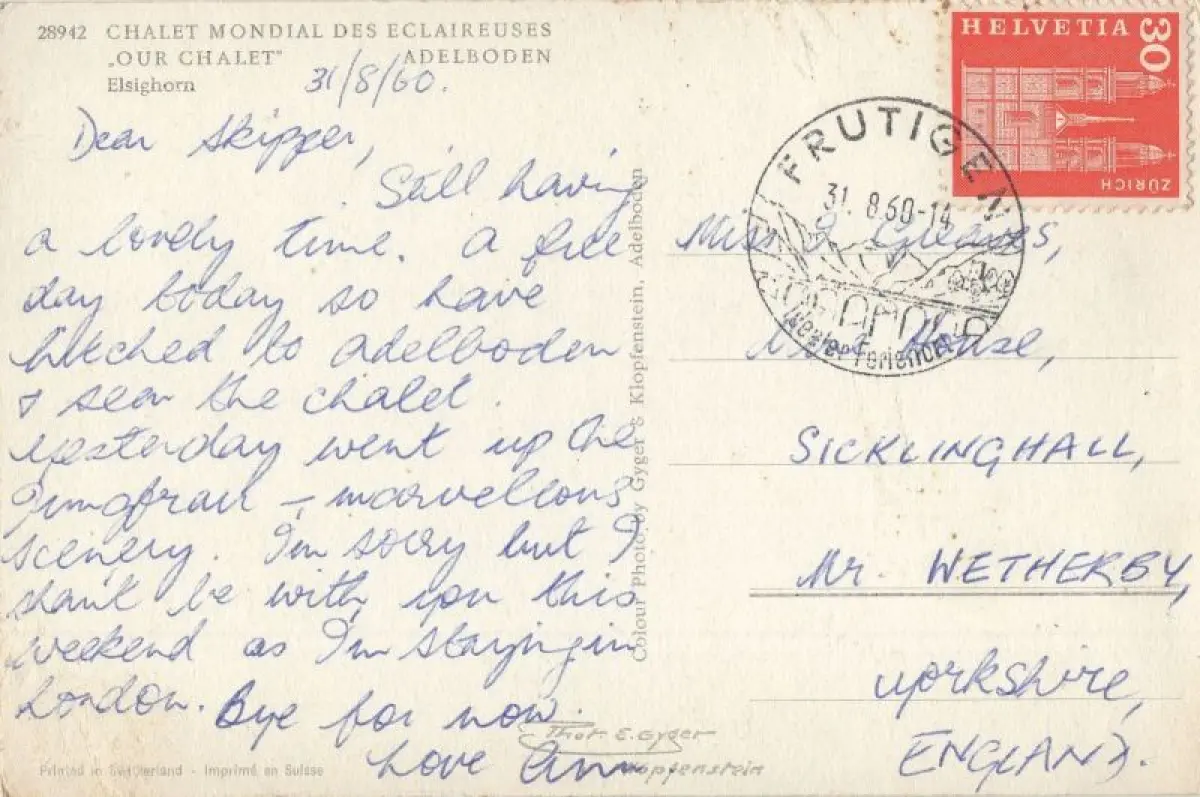 28942 CHALET MONDIAL DES ECLAIREUSES
„OUR CHALET" ADELBODEN
Elsighorn
31/8/60.
Dear Skipper,
Still having
a lovely time. A free
day today so have
hitched to Adelboden
& seen the chalet.
Yesterday went up the
Jungfrau – marvellous
scenery. I'm sorry but I
shan't be with you this
weekend as I'm staying in
London. Bye for now.
Love Ann
Printed in Switzerland - Imprimé en Suisse
Phot. E. Gyger
Klopfenstein
Colour Photo by Gyger & Klopfenstein, Adelboden
HELVETIA
30
ZÜRICH
FRUTIGEN
31. 8.60-14
Miss Greaves,
House,
SICKLINGHALL,
Nr. WETHERBY,
Yorkshire,
ENGLAND.